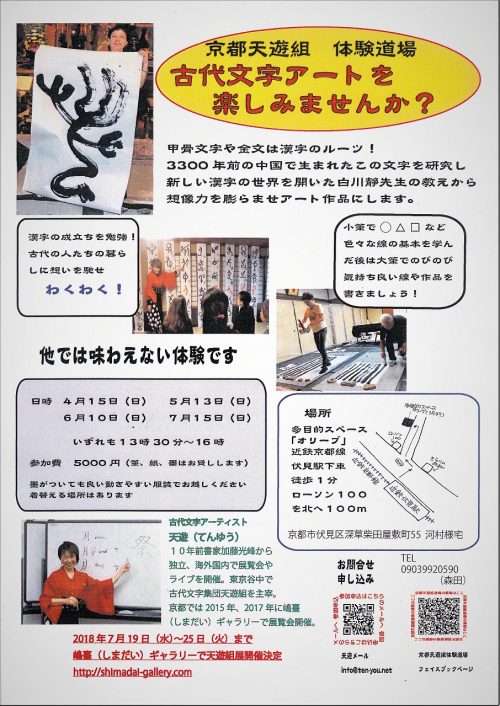 京都天遊組 体験道場
古代文字アートを
楽しみませんか？
甲骨文字や金文は漢字のルーツ！
3300年前の中国で生まれたこの文字を研究し
新しい漢字の世界を開いた白川静先生の教えから
想像力を膨らませアート作品にします。
漢字の成立ちを勉強！
古代の人たちの暮ら
しに想いを馳せ
わくわく！
小筆で ○ △ □ など
色々な線の基本を学ん
だ後は大筆でのびのび
気持ち良い線や作品を
書きましょう！
他では味わえない体験です
日時 4月15日（日） 5月13日（日）
6月10日（日） 7月15日（日）
いずれも13時30分～16時
参加費 5000円（筆、紙、墨はお貸しします）
墨がついても良い動きやすい服装でお越しください
着替える場所はあります
場所
多目的スペース
「オリーブ」
近鉄京都線
伏見駅下車
徒歩1分
ローソン100
を北へ100m
京都市伏見区深草柴田屋敷町55 河村様宅
古代文字アーティスト
天遊（てんゆう）
１０年前書家加藤光峰から
独立、海外国内で展覧会や
ライブを開催。東京谷中で
古代文字集団天遊組を主宰。
京都では2015年、2017年に嶋臺
（しまだい）ギャラリーで展覧会開催。
祭
お問合せ
申し込み
TEL
09039920590
（森田）
参加申込はこちら
天遊メール
info@ten-you.net
京都天遊組体験道場
フェイスブックページ
2018年7月19日（水）～25日（火）まで
嶋臺（しまだい）ギャラリーで天遊組展開催決定
http://shimadai-gallery.com